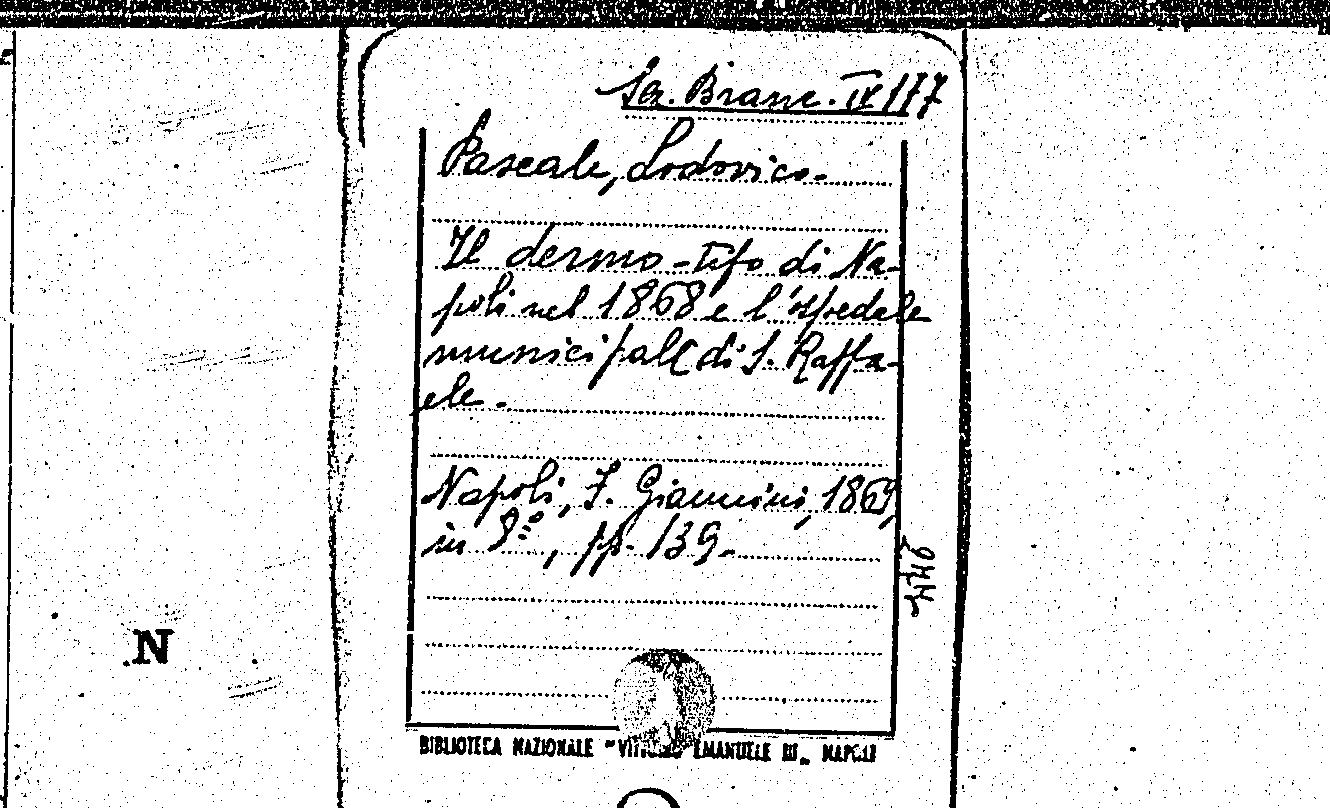 Ser. Branc. IV 177
Pascale, Lodovico.
Il dermo-tifo di Na-
poli nel 1868 e l'ospedale
municipale di S. Raffa-
ele.
Napoli, F. Giannini, 1869,
in 8°, pp. 139.
N
BIBLIOTECA NAZIONALE "VITTORIO EMANUELE III„ NAPOLI